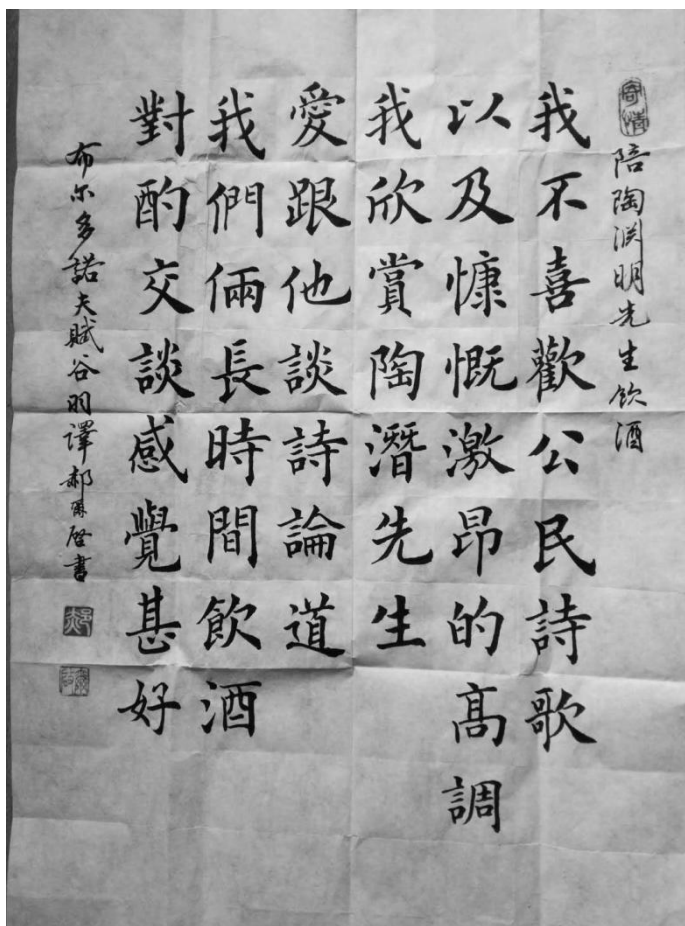 陪陶淵明先生飲酒
我不喜歡公民詩歌
以及慷慨激昂的高調
我欣賞陶潛先生
愛跟他談詩論道
我們倆長時間飲酒
對酌交談感覺甚好
布尔多諾夫賦谷羽譯郝尔启書